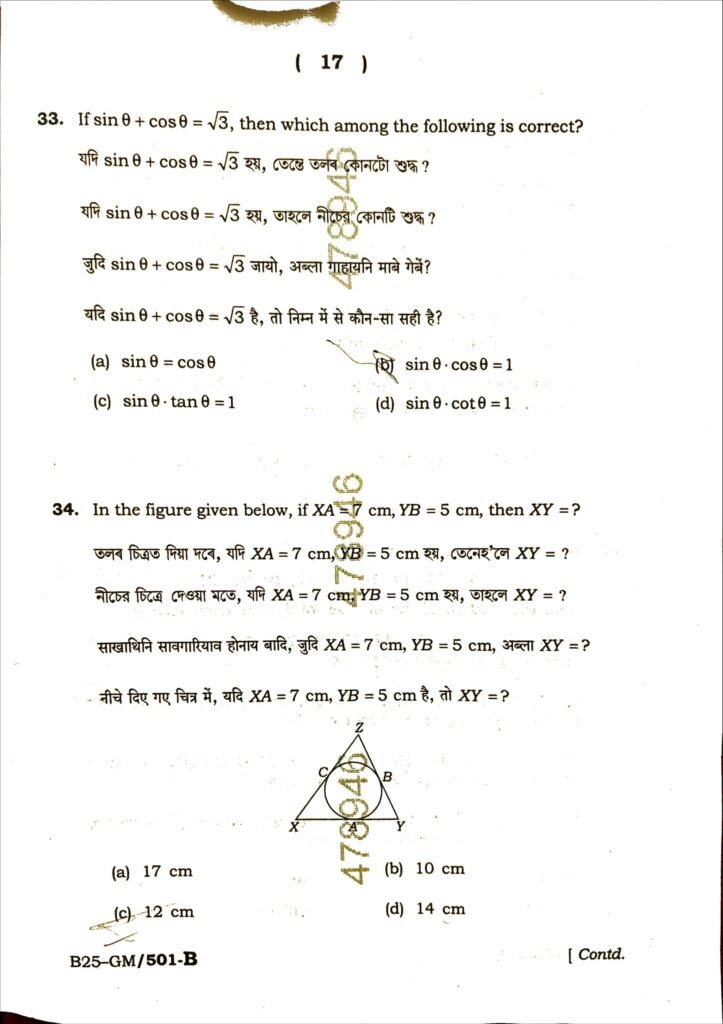 ( 17 )
33. If sin θ + cos θ = √3, then which among the following is correct?
যদি sin θ + cos θ = √3 হয়, তেন্তে তলৰ কোনটো শুদ্ধ ?
যদি sin θ + cos θ = √3 হয়, তাহলে নীচের কোনটি শুদ্ধ ?
जुदि sin θ + cos θ = √3 जायो, अब्ला गाहायनि माबे गेबें?
यदि sin θ + cos θ = √3 है, तो निम्न में से कौन-सा सही है?
(a) sin θ = cos θ
(b) sin θ · cos θ = 1
(c) sin θ · tan θ = 1
(d) sin θ · cot θ = 1
34. In the figure given below, if XA = 7 cm, YB = 5 cm, then XY = ?
তলৰ চিত্ৰত দিয়া দৰে, যদি XA = 7 cm, YB = 5 cm হয়, তেনেহ'লে XY = ?
নীচের চিত্রে দেওয়া মতে, যদি XA = 7 cm, YB = 5 cm হয়, তাহলে XY = ?
साखाथिनि सावगारियाव होनाय बादि, जुदि XA = 7 cm, YB = 5 cm, अब्ला XY = ?
नीचे दिए गए चित्र में, यदि XA = 7 cm, YB = 5 cm है, तो XY = ?
Z
C
B
X
A
Y
(a) 17 cm
(b) 10 cm
(c) 12 cm
(d) 14 cm
B25–GM/501-B
[ Contd.
478946
478946
478946